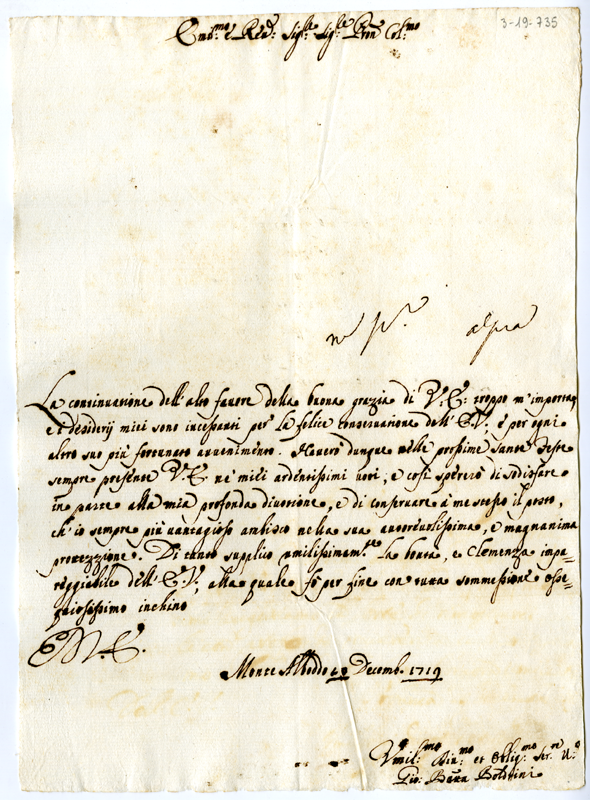 3-19-735
Em:mo e Rev: Sig:r Sig:r Pron Col:mo
La continuatione dell'alto favore della buona grazia di V: E: troppo m'importa,
e i desiderij miei sono incessanti per la felice conservatione dell'E.V., e per ogni
altro suo più fortunato avvenimento. Haverò dunque nelle prossime sante Feste
sempre presente V. E. ne' miei ardentissimi voti, e così spererò di sodisfare
in parte alla mia profonda divotione, e di conservare à me stesso il posto,
ch'io sempre più vantagioso ambisco nella sua autorevolissima, e magnanima
protezzione. Di tanto supplico umilissimam:te la bontà, e Clemenza impa-
reggiabile dell'E.V., alla quale fò per fine con tutta sommessione osse-
quiosissimo inchino
Monte Alboddo Decemb. 1719
Umil:mo Div:mo et Oblig:mo Ser:re V:o
Gio: Batta Boldrini